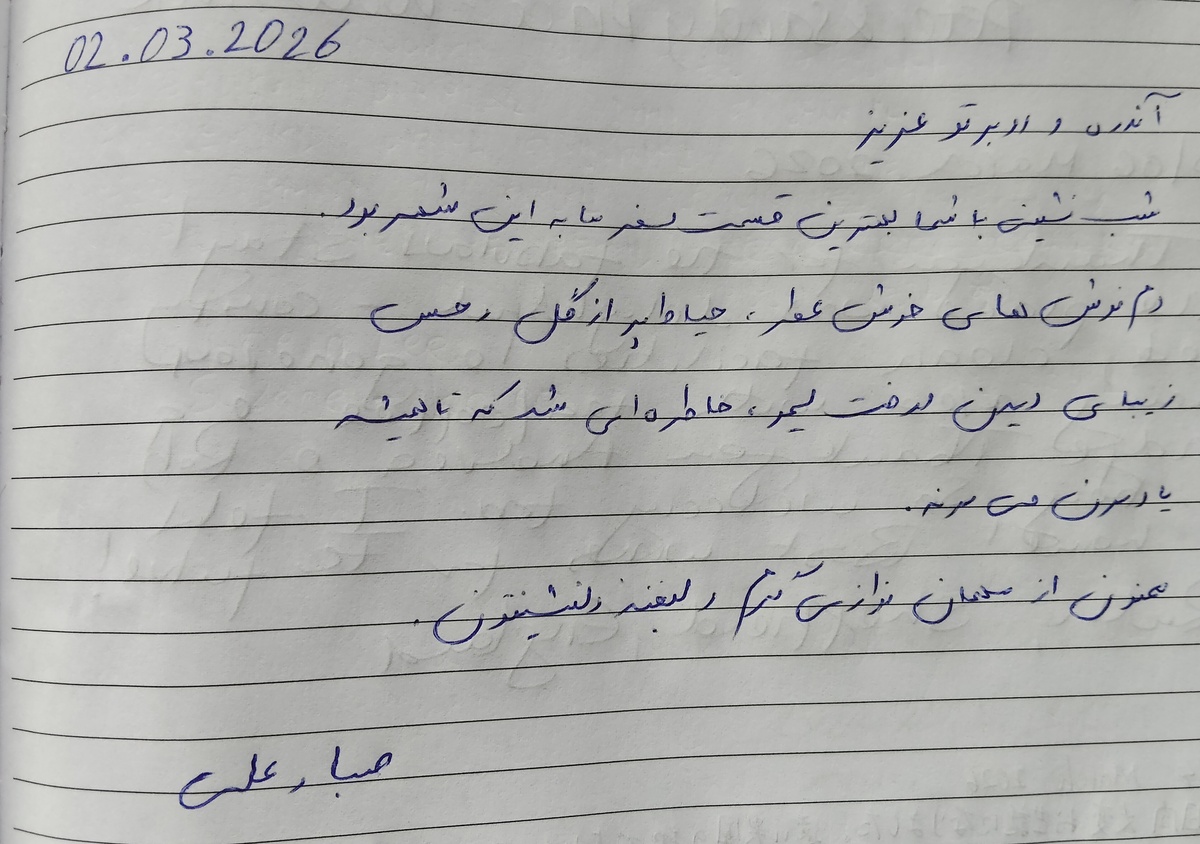 02.03.2026
آندره و روبرتو عزیز
شب نشینی با شما بهترین قسمت سفر ما به این شهر بود.
دم نوش های خوش عطر، حیاط پر از گل و حس
زیبای دیدن درخت لیمو، خاطره ای شد که تا همیشه
یادمون می مونه.
ممنون از مهمان نوازی گرم و لبخند دلنشینتون.
صبا و علی